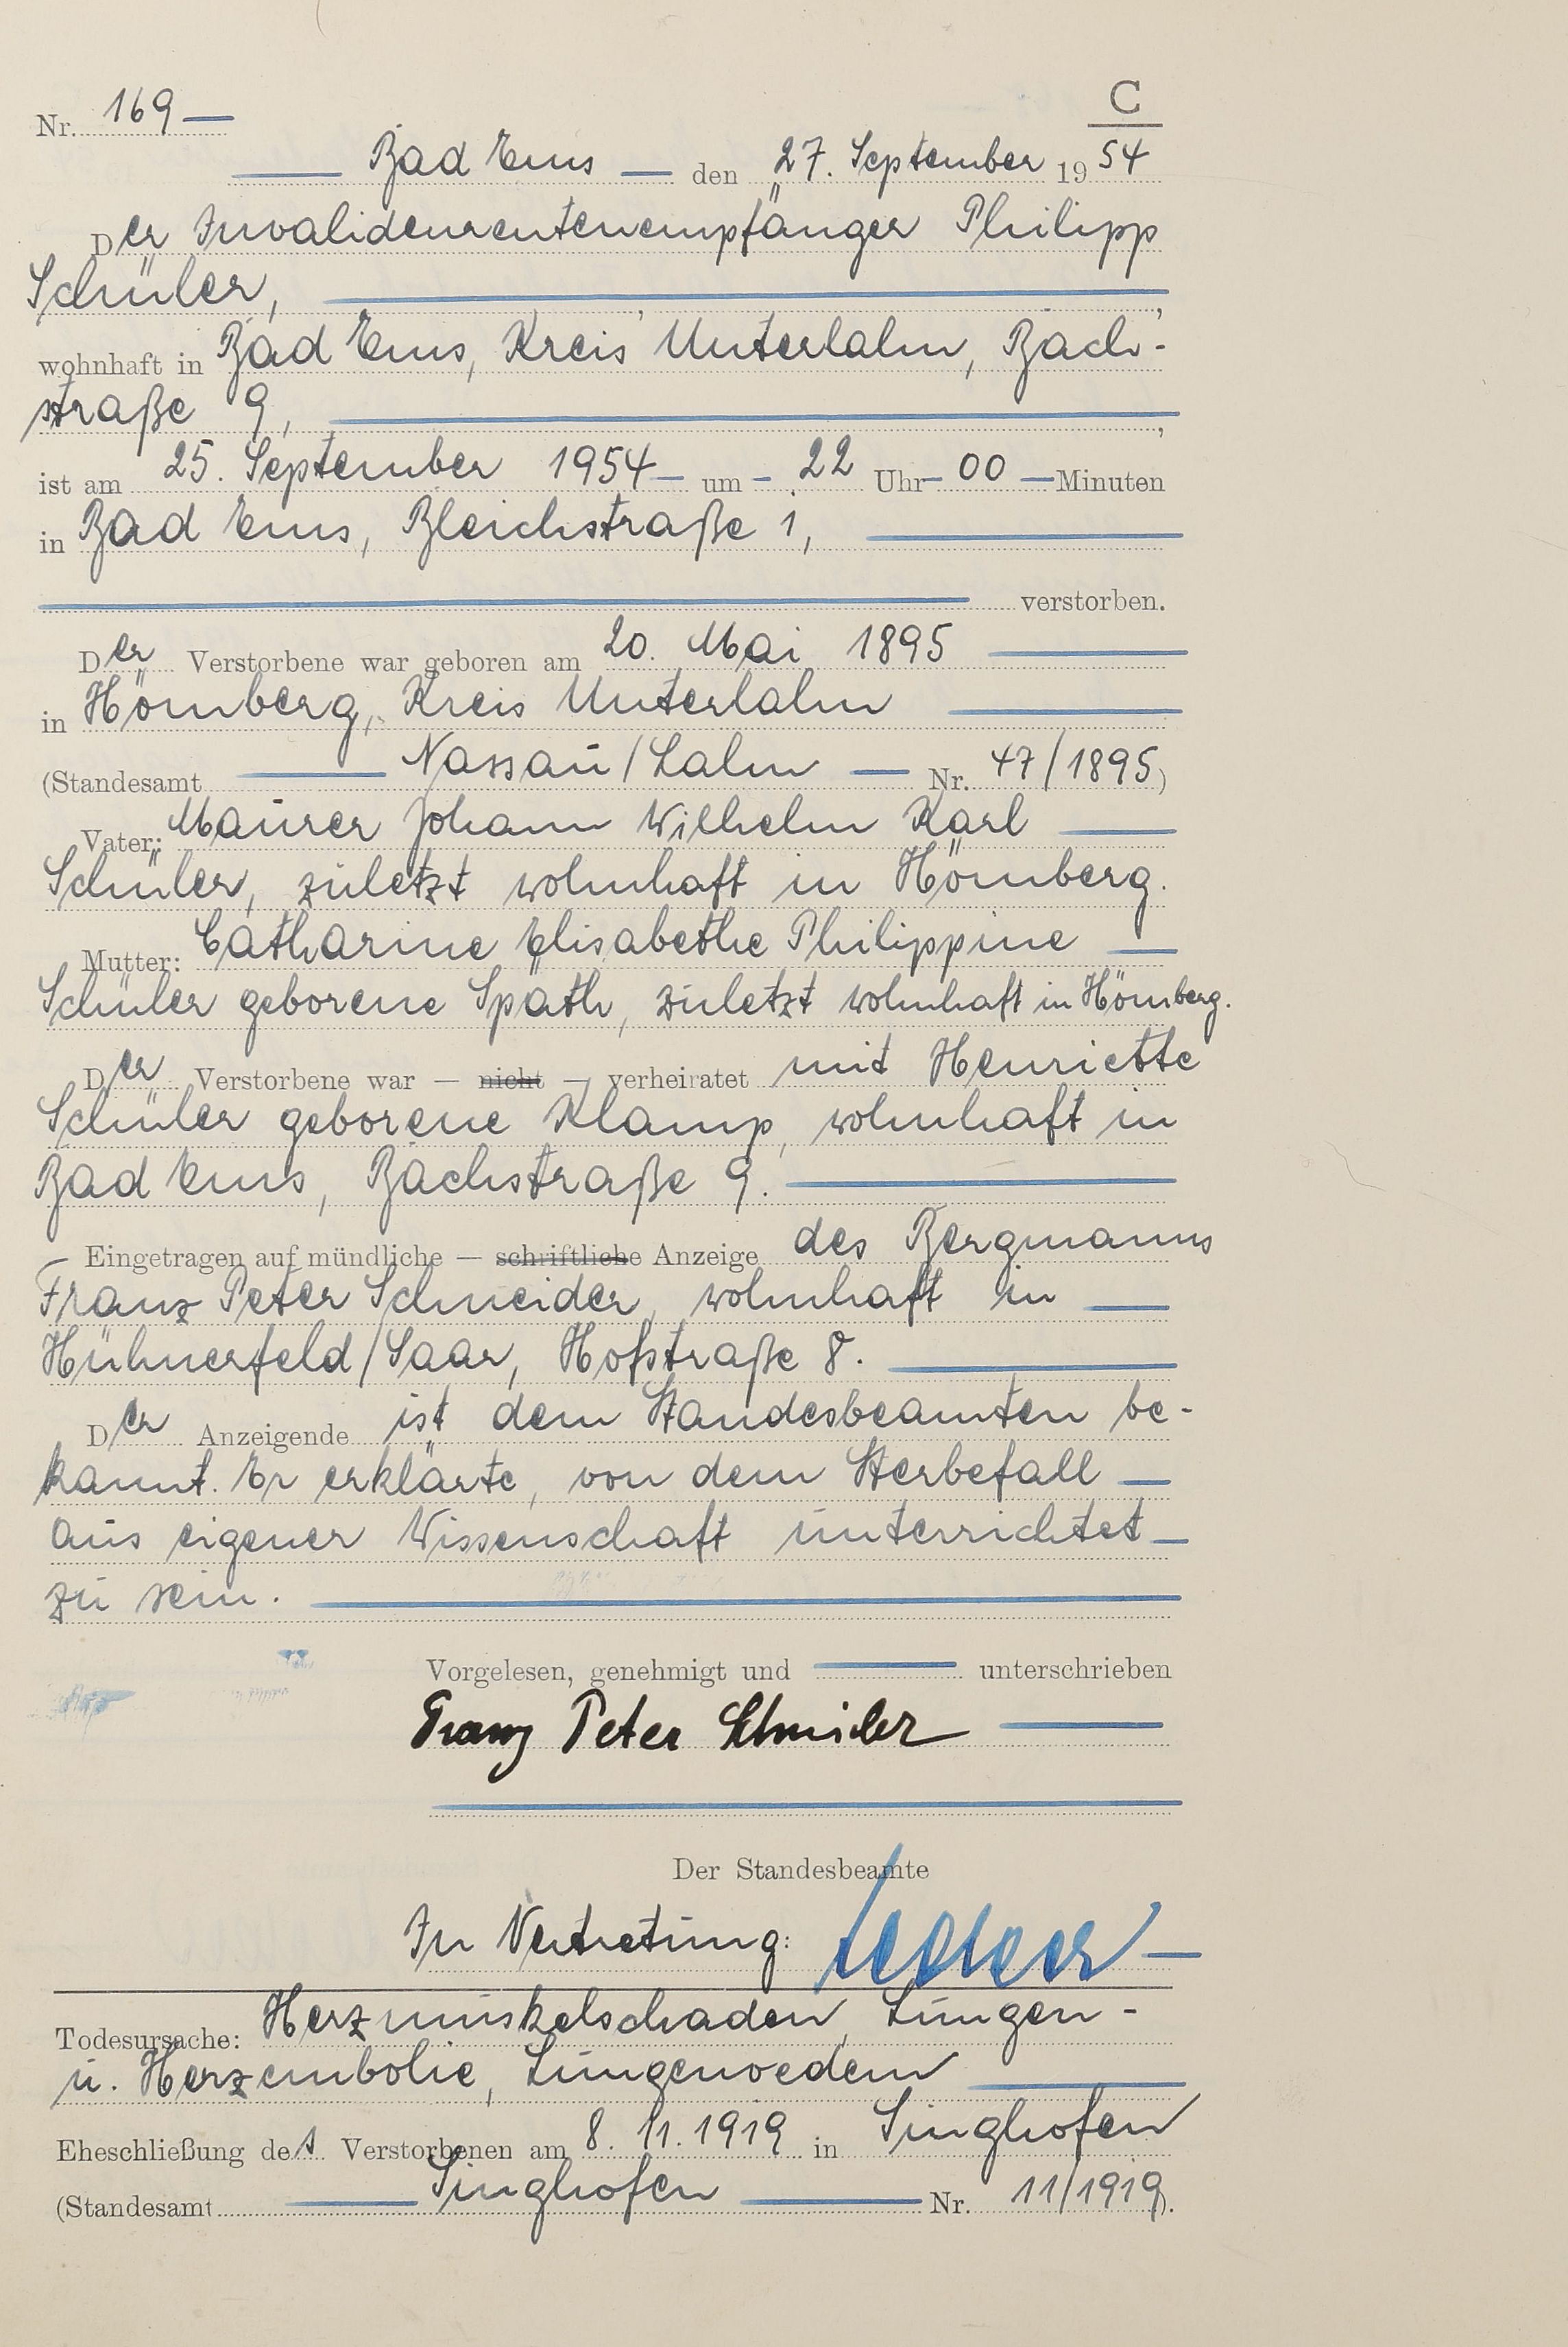 C
Nr. 169
Bad Ems den 27. September 1954
Der Invalidenrentenempfänger Philipp
Schüler,
wohnhaft in Bad Ems, Kreis Unterlahn, Bach-
straße 9,
ist am 25. September 1954 um 22 Uhr 00 Minuten
in Bad Ems, Bleichstraße 1,
verstorben.
Der Verstorbene war geboren am 20. Mai 1895
in Hömberg, Kreis Unterlahn
(Standesamt Nassau/Lahn Nr. 47/1895)
Vater: Maurer Johann Wilhelm Karl
Schüler, zuletzt wohnhaft in Hömberg.
Mutter: Catharine Elisabethe Philippine
Schüler geborene Späth, zuletzt wohnhaft in Hömberg.
Der Verstorbene war — nicht — verheiratet mit Henriette
Schüler geborene Klamp, wohnhaft in
Bad Ems, Bachstraße 9.
Eingetragen auf mündliche — schriftliche Anzeige des Bergmanns
Franz Peter Schneider, wohnhaft in
Hühnerfeld/Saar, Hofstraße 8.
Der Anzeigende ist dem Standesbeamten be-
kannt. Er erklärte, von dem Sterbefall
aus eigener Wissenschaft unterrichtet
zu sein.
Vorgelesen, genehmigt und unterschrieben
Franz Peter Schneider
Der Standesbeamte
In Vertretung:
Todesursache: Herzmuskelschaden, Lungen-
u. Herzembolie, Lungenoedem
Eheschließung des Verstorbenen am 8. 11. 1919 in Singhofen
(Standesamt Singhofen Nr. 11/1919).